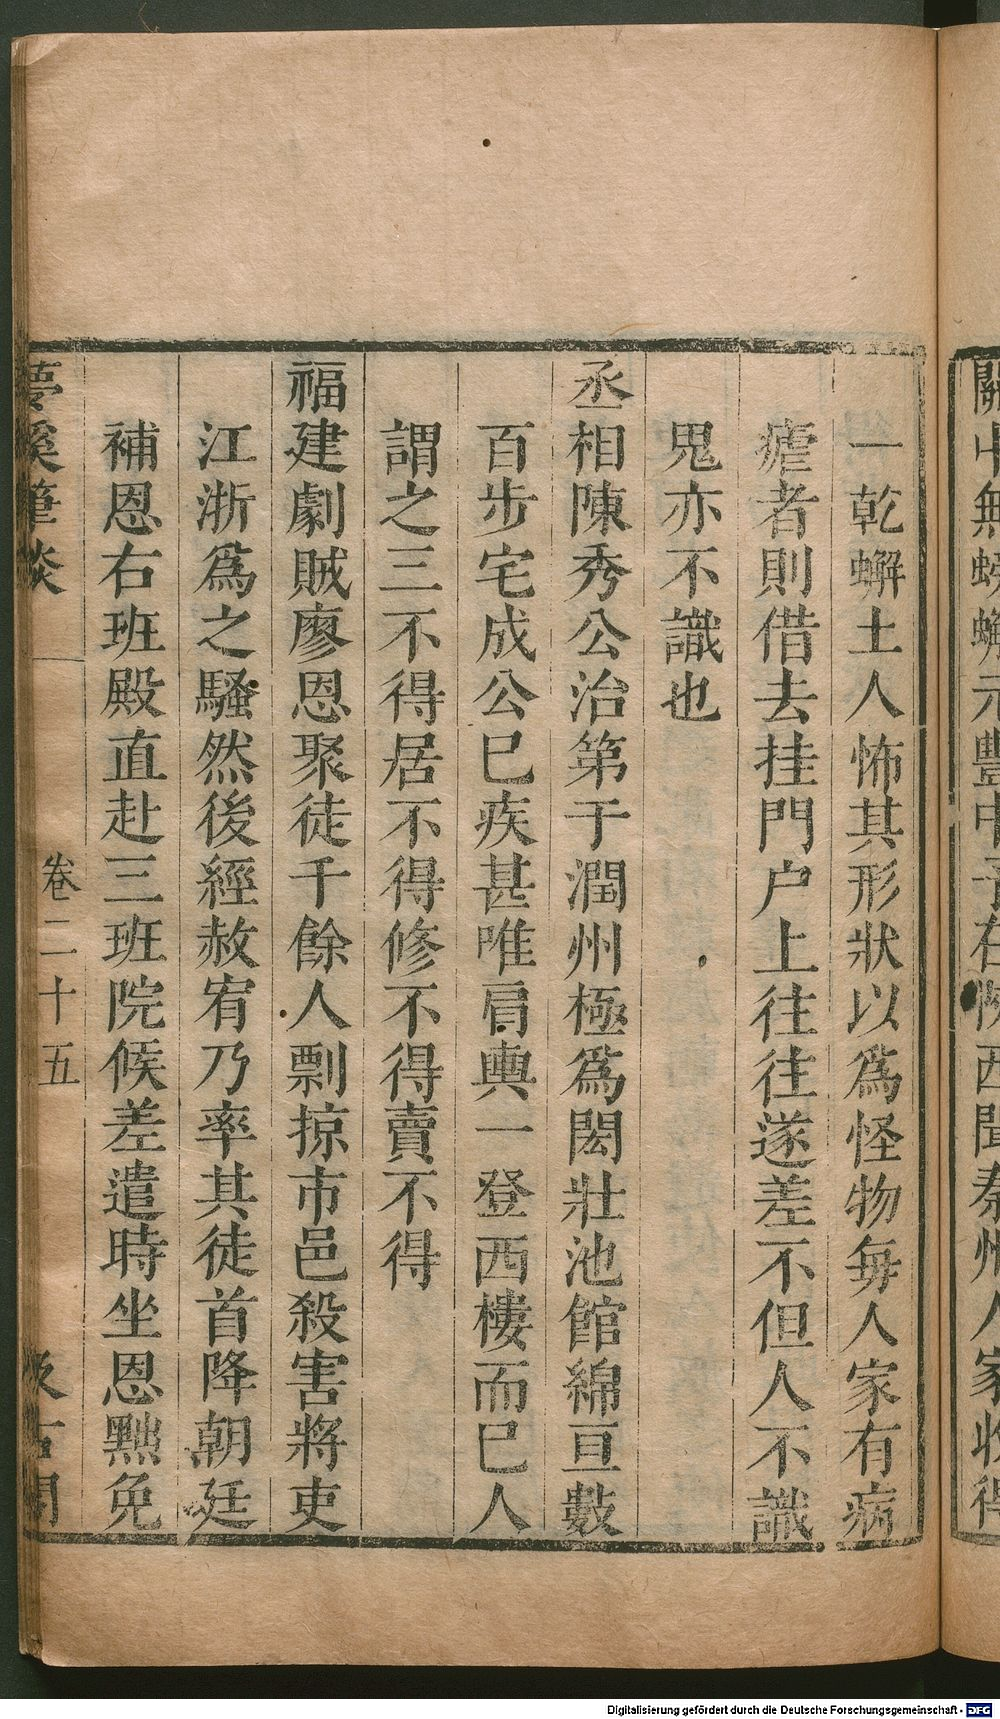 關中無螃蟹元豐中予在陝西聞秦州人家收得
一乾蠏土人怖其形狀以爲怪物每人家有病
瘧者則借去挂門户上往往遂差不但人不識
鬼亦不識也
丞相陳秀公治第于潤州極爲閎壯池館綿亘數
百步宅成公已疾甚唯肩輿一登西樓而已人
謂之三不得居不得修不得賣不得
福建劇賊廖恩聚徒千餘人剽掠市邑殺害將吏
江浙爲之騷然後經赦宥乃率其徒首降朝廷
補恩右班殿直赴三班院候差遣時坐恩黥免
夢溪筆談 卷二十五 汲古閣
Digitalisierung gefördert durch die Deutsche Forschungsgemeinschaft - DFG